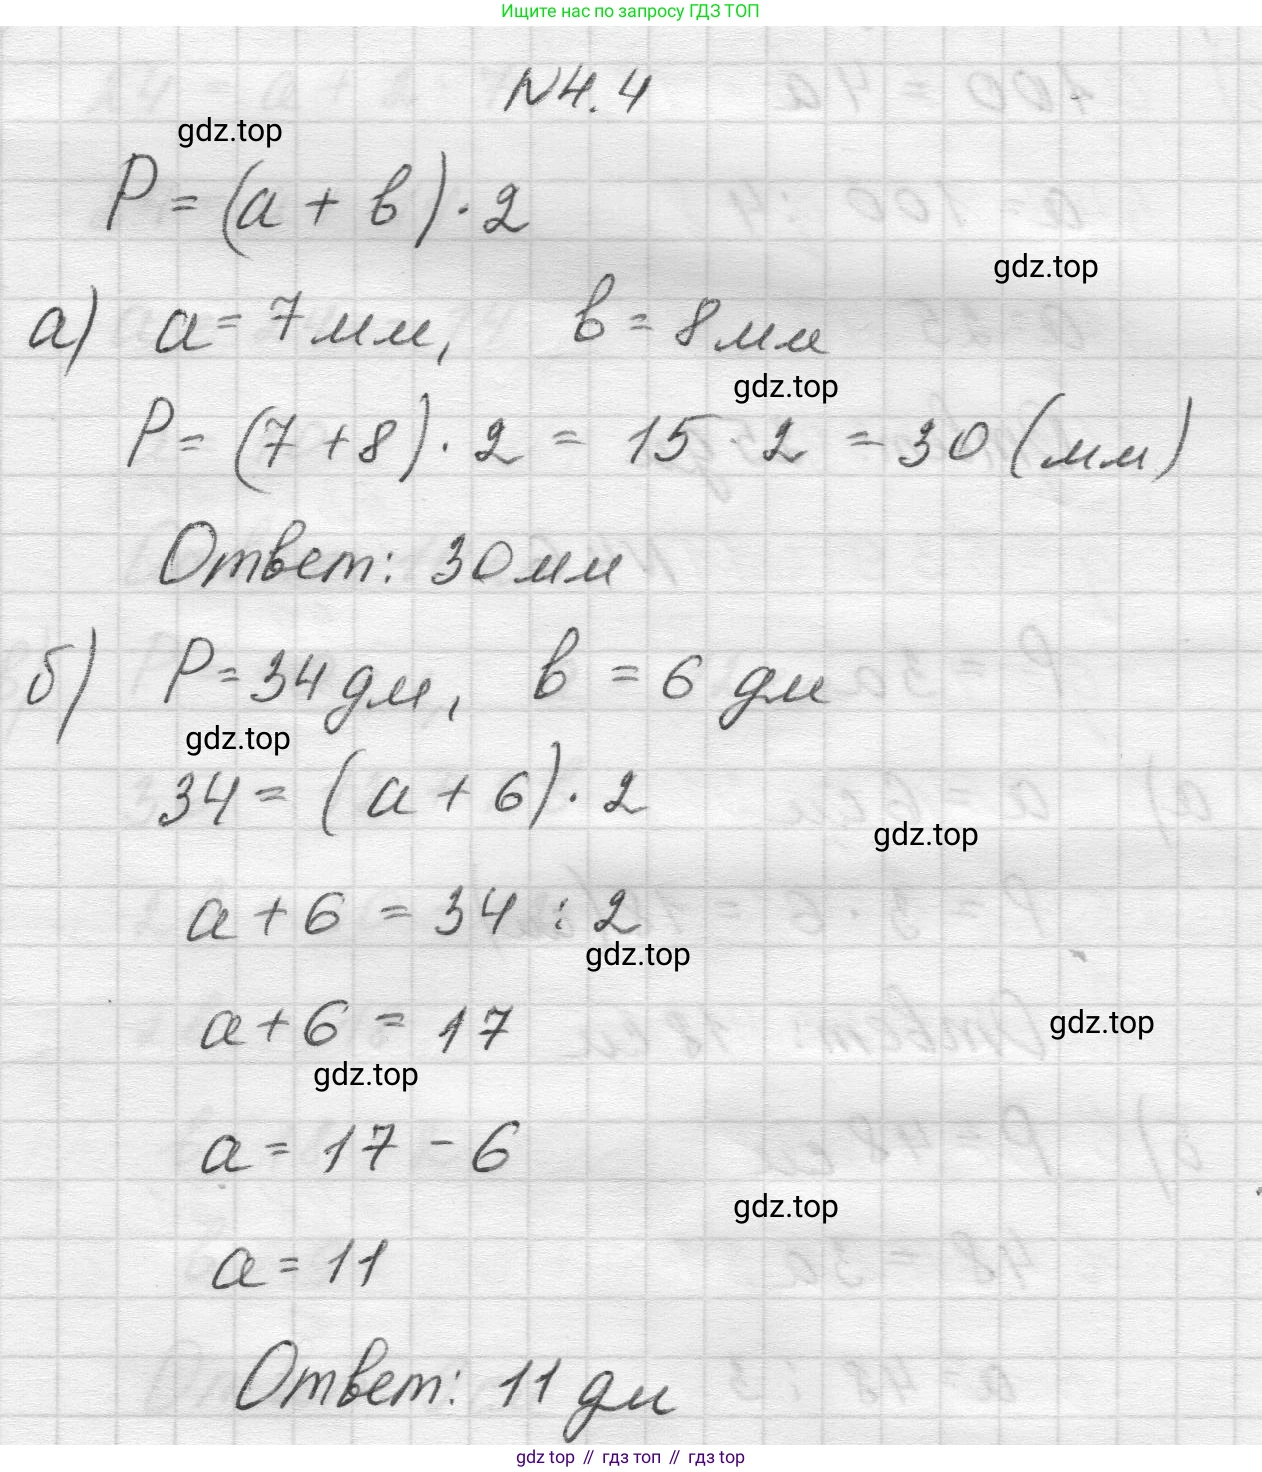 Ищите нас по запросу ГДЗ ТОП
N4.4
gdz.top
P = (a + b) · 2
gdz.top
а) a = 7 мм, b = 8 мм
gdz.top
P = (7 + 8) · 2 = 15 · 2 = 30 (мм)
Ответ: 30 мм
б) P = 34 дм, b = 6 дм
gdz.top
34 = (a + 6) · 2
gdz.top
a + 6 = 34 : 2
gdz.top
a + 6 = 17
gdz.top
gdz.top
a = 17 - 6
gdz.top
a = 11
Ответ: 11 дм
gdz top // гдз топ // гдз top